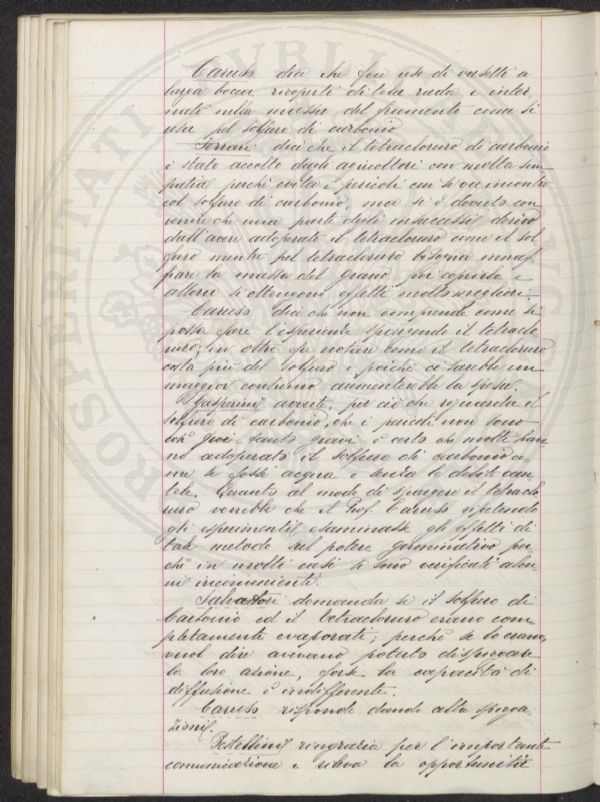 Caruso dice che fece uso di vasetti a
larga bocca ricoperti di tela rada e inter
nati nella massa del frumento come si
usa pel solfuro di carbonio
Ferrari dice che il tetracloruro di carbonio
è stato accolto dagli agricoltori con molta sim
patia perchè evita i pericoli cui si va incontro
col solfuro di carbonio, ma si è dovuto con
venire che una parte degli insuccessi deriva
dall'avere adoperato il tetracloruro come il sol
furo mentre pel tetracloruro bisogna innaf
fiare la massa del grano per coprirlo e
allora si ottengono effetti molto migliori.
Caruso dice che non comprende come si
possa fare l'esperienza spargendo il tetraclo
ruro; in oltre fa notare come il tetracloruro
costa più del solfuro e poichè ci sarebbe un
maggior consumo aumenterebbe la spesa.
Gasperini avverte, per ciò che riguarda il
solfuro di carbonio, che i pericoli non sono
poi tanto gravi è certo che molte han
no adoperato il solfuro di carbonio co
me se fosse acqua e senza le debite cau
tele. Quanto al modo di spargere il tetraclo
ruro vorrebbe che il Prof. Caruso ripetendo
gli esperimenti esaminasse gli effetti di
tale metodo sul potere germinativo per
chè in molti casi si sono verificati alcu
ni inconvenienti.
Salvatori domanda se il solfuro di
Carbonio ed il tetracloruro erano com
pletamente evaporati; perchè se lo erano,
vuol dire avevano potuto dispiegare
la loro azione, forse la capacità di
diffusione è indifferente.
Caruso risponde dando alla spiega
zioni.
Pestellini ringrazia per l'importante
comunicazione e rileva la opportunità